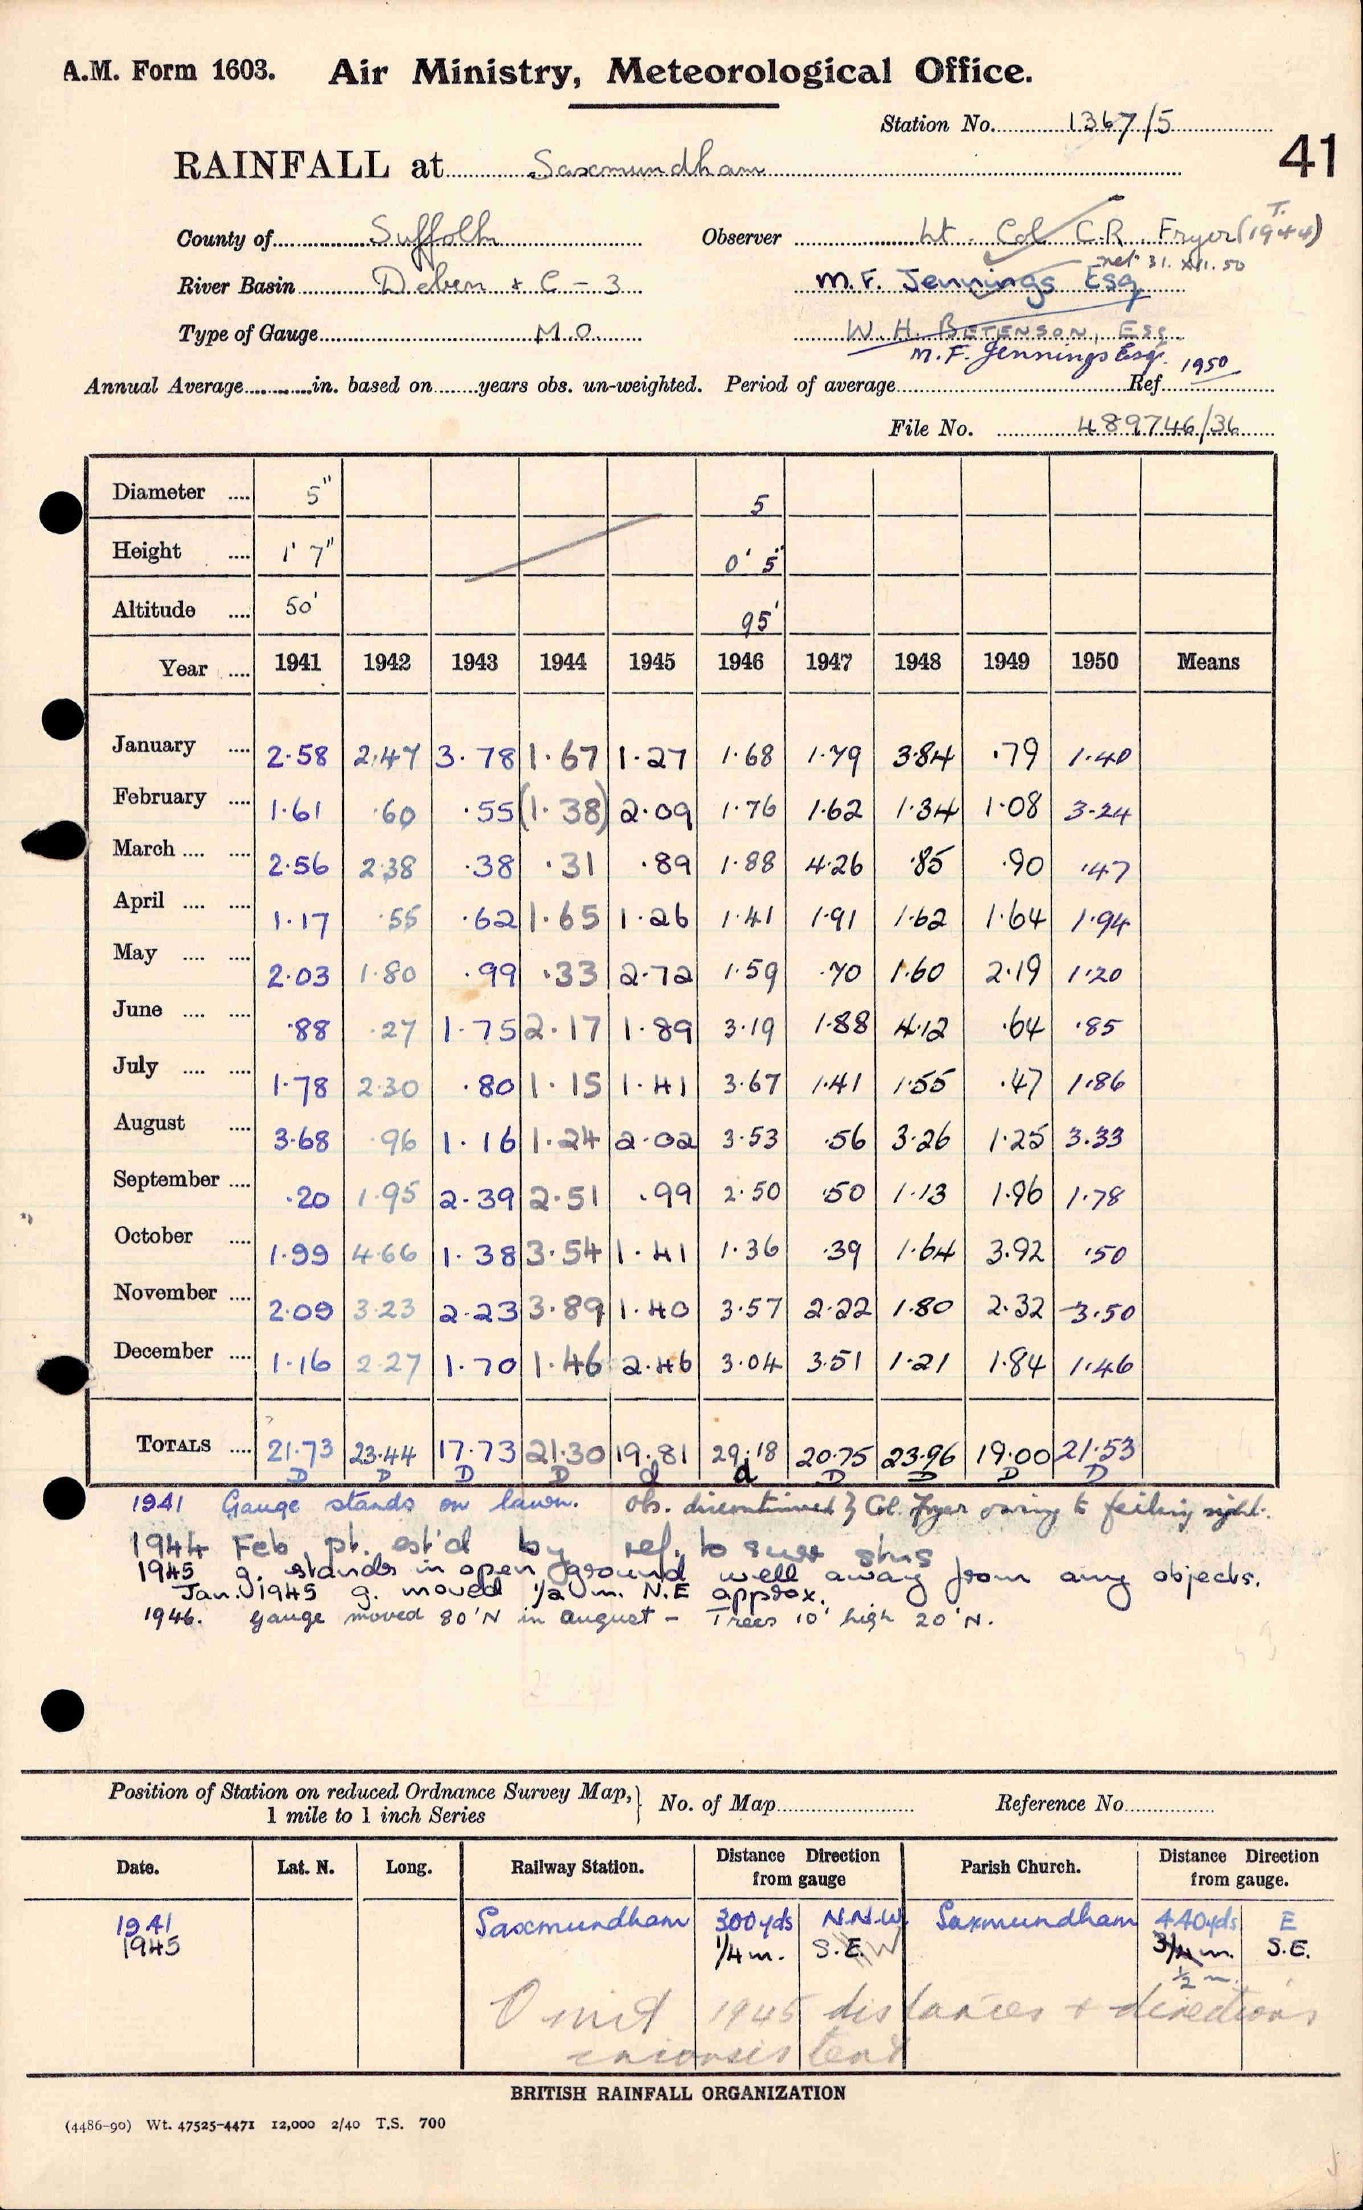 A.M. Form 1603. Air Ministry, Meteorological Office.
Station No. 1367/5
41
RAINFALL at Saxmundham
County of Suffolk Observer Lt. Col C.R. Fryer (T. 1944)
ret. 31.XII.50
River Basin Deben & C - 3 M.F. Jennings Esq
Type of Gauge M.O. W.H. BETENSON, ESQ.
M.F. Jennings Esq. 1950
Annual Average in. based on years obs. un-weighted. Period of average Ref.
File No. 489746/36
Diameter .... 5" 5
Height .... 1' 7" 0' 5"
Altitude .... 50' 95'
Year .... 1941 1942 1943 1944 1945 1946 1947 1948 1949 1950 Means
January .... 2.58 2.47 3.78 1.67 1.27 1.68 1.79 3.84 .79 1.40
February .... 1.61 .60 .55 (1.38) 2.09 1.76 1.62 1.34 1.08 3.24
March .... .... 2.56 2.38 .38 .31 .89 1.88 4.26 .85 .90 .47
April .... .... 1.17 .55 .62 1.65 1.26 1.41 1.91 1.62 1.64 1.94
May .... .... 2.03 1.80 .99 .33 2.72 1.59 .70 1.60 2.19 1.20
June .... .... .88 .27 1.75 2.17 1.89 3.19 1.88 4.12 .64 .85
July .... .... 1.78 2.30 .80 1.15 1.41 3.67 1.41 1.55 .47 1.86
August .... 3.68 .96 1.16 1.24 2.02 3.53 .56 3.26 1.25 3.33
September .... .20 1.95 2.39 2.51 .99 2.50 .50 1.13 1.96 1.78
October .... 1.99 4.66 1.38 3.54 1.41 1.36 .39 1.64 3.92 .50
November .... 2.09 3.23 2.23 3.89 1.40 3.57 2.22 1.80 2.32 3.50
December .... 1.16 2.27 1.70 1.46 2.46 3.04 3.51 1.21 1.84 1.46
TOTALS .... 21.73 23.44 17.73 21.30 19.81 29.18 20.75 23.96 19.00 21.53
D D D D d d D D D D
1941 Gauge stands on lawn. Obs. discontinued by Col. Fryer owing to failing sight.
1944 Feb pt. est'd by ref. to surr stns
1945 g. stands in open ground well away from any objects.
Jan. 1945 g. moved 1/2 m. N.E approx.
1946. Gauge moved 80' N in august - Trees 10' high 20' N.
Position of Station on reduced Ordnance Survey Map, } No. of Map Reference No.
1 mile to 1 inch Series
Date. Lat. N. Long. Railway Station. Distance Direction from gauge Parish Church. Distance Direction from gauge.
1941 Saxmundham 300yds N.N.W. Saxmundham 440yds E
1945 1/4 m. S.E. W 3/4 m. S.E.
1/2 m.
Omit 1945 distances & directions
inconsistent
BRITISH RAINFALL ORGANIZATION
(4486-90) Wt. 47525-4471 12,000 2/40 T.S. 700